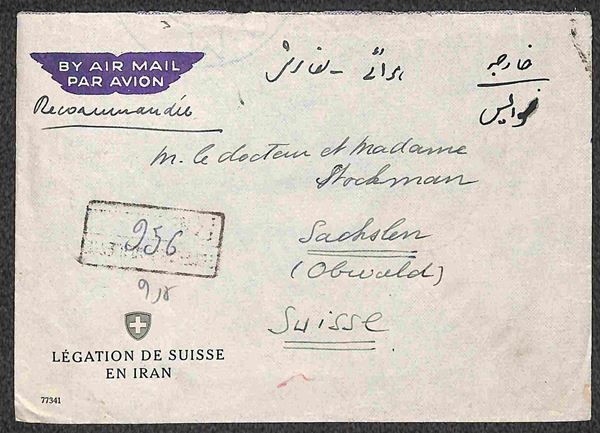 BY AIR MAIL
PAR AVION
Recommandée
هوائی سفارشی
خارجه
سوایس
M. le docteur et Madame
Stockman
Sachslen
(Obwald)
Suisse
956
LÉGATION DE SUISSE
EN IRAN
77341